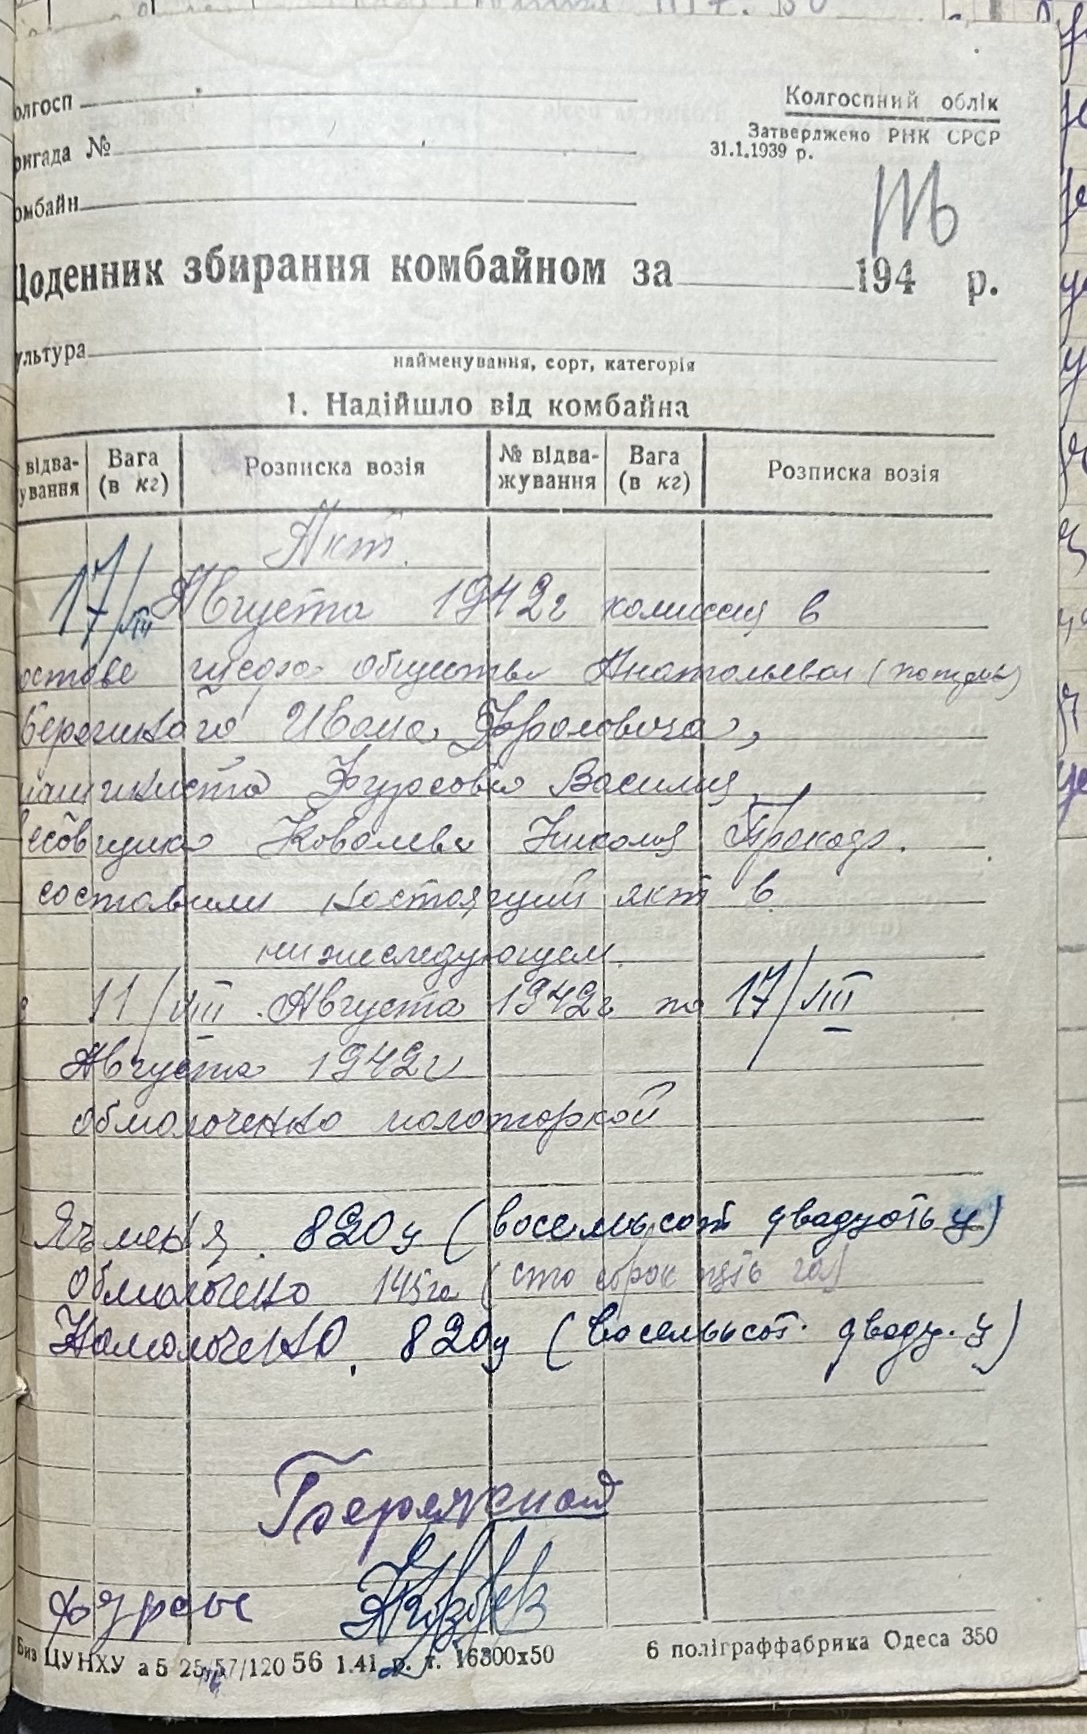 олгосп
Колгоспний облік
ригада №
Затверджено РНК СРСР
31.1.1939 р.
омбайн
Щоденник збирання комбайном за 194 р.
ультура
найменування, сорт, категорія
1. Надійшло від комбайна
відва-
ування
Вага
(в кг)
Розписка возія
№ відва-
жування
Вага
(в кг)
Розписка возія
Акт
17/VIII Августа 1942г комиссия в
оставе общества
Ивана Фроловича,
ашиниста Фурсова Василия
есовщика Ковалева Николая
составили настоящий акт в
нижеследующем.
11/VIII Августа 1942г по 17/VIII
Августа 1942г
обмолоченно молотаркой
Ячменя. 820ц (восемьсот двадцать ц)
Обмолочено 145га (сто сорок пять га)
Намолочено. 820ц (восемьсот. двадц. ц)
Бережной
Фурсов
Биз ЦУНХУ а5 25/57/120 56 1.41 р. т. 16300х50
6 поліграффабрика Одеса 350